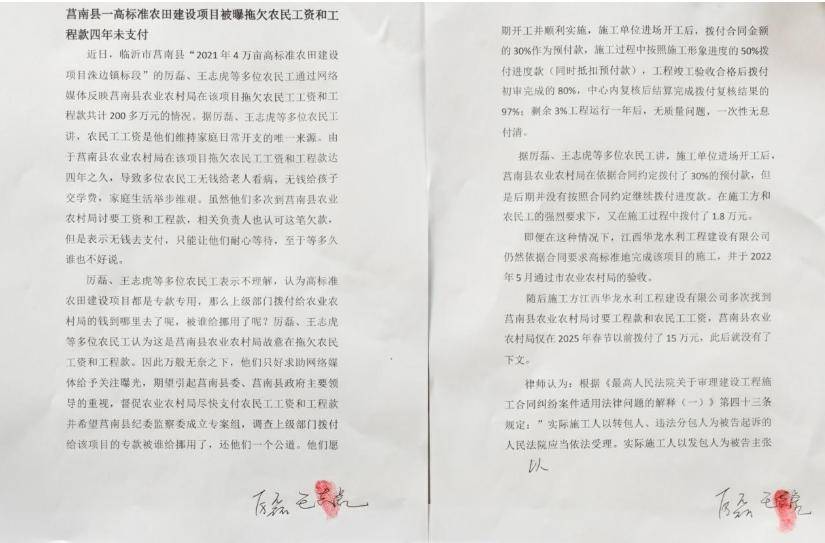 莒南县一高标准农田建设项目被曝拖欠农民工资和工
程款四年未支付
近日，临沂市莒南县“2021年4万亩高标准农田建设
项目洙边镇标段”的厉磊、王志虎等多位农民工通过网络
媒体反映莒南县农业农村局在该项目拖欠农民工工资和工
程款共计200多万元的情况。据厉磊、王志虎等多位农民工
讲，农民工工资是他们维持家庭日常开支的唯一来源。由
于莒南县农业农村局在该项目拖欠农民工工资和工程款达
四年之久，导致多位农民工无钱给老人看病，无钱给孩子
交学费，家庭生活举步维艰。虽然他们多次到莒南县农业
农村局讨要工资和工程款，相关负责人也认可这笔欠款，
但是表示无钱去支付，只能让他们耐心等待，至于等多久
谁也不好说。
厉磊、王志虎等多位农民工表示不理解，认为高标准
农田建设项目都是专款专用，那么上级部门拨付给农业农
村局的钱到哪里去了呢，被谁给挪用了呢？厉磊、王志虎
等多位农民工认为这是莒南县农业农村局故意在拖欠农民
工资和工程款。因此万般无奈之下，他们只好求助网络媒
体给予关注曝光，期望引起莒南县委、莒南县政府主要领
导的重视，督促农业农村局尽快支付农民工工资和工程款
并希望莒南县纪委监察委成立专案组，调查上级部门拨付
给该项目的专款被谁给挪用了，还他们一个公道。他们愿
厉磊 王志虎
期开工并顺利实施，施工单位进场开工后，拨付合同金额
的30%作为预付款，施工过程中按照施工形象进度的50%拨
付进度款（同时抵扣预付款），工程竣工验收合格后拨付
初审完成的80%，中心内复核后结算完成拨付复核结果的
97%；剩余3%工程运行一年后，无质量问题，一次性无息
付清。
据厉磊、王志虎等多位农民工讲，施工单位进场开工后，
莒南县农业农村局在依据合同约定拨付了30%的预付款，但
是后期并没有按照合同约定继续拨付进度款。在施工方和
农民工的强烈要求下，又在施工过程中拨付了1.8万元。
即便在这种情况下，江西华龙水利工程建设有限公司
仍然依据合同要求高标准地完成该项目的施工，并于2022
年5月通过市农业农村局的验收。
随后施工方江西华龙水利工程建设有限公司多次找到
莒南县农业农村局讨要工程款和农民工工资，莒南县农业
农村局仅在2025年春节以前拨付了15万元，此后就没有了
下文。
律师认为：根据《最高人民法院关于审理建设工程施
工合同纠纷案件适用法律问题的解释（一）》第四十三条
规定：”实际施工人以转包人、违法分包人为被告起诉的
人民法院应当依法受理。实际施工人以发包人为被告主张
以
厉磊 王志虎